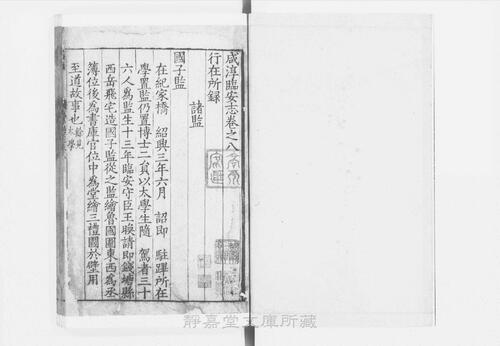 咸淳臨安志卷之八
行在所録
諸監
國子監
在紀家橋 紹興三年六月 詔即 駐蹕所在
學置監仍置博士二員以太學生隨 駕者三十
六人為監生十三年臨安守臣王㬇請即錢塘縣
西岳飛宅造國子監從之監繪魯國圖東西為丞
簿位後為書庫官位中為堂繪三禮圖於壁用
至道故事也餘見太學
靜嘉堂文庫所藏